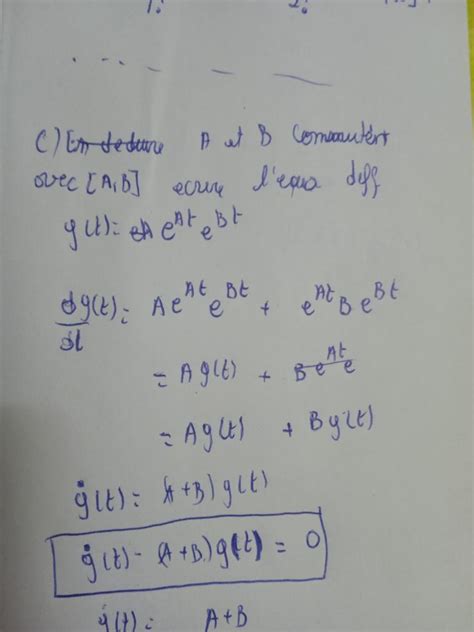 1: 2:
C) En deduire A et B commutent
avec [A,B] ecrire l'equa diff
g(t) = e^{At} e^{Bt}
dg(t)/dt = A e^{At} e^{Bt} + e^{At} B e^{Bt}
= A g(t) + B e^{At} e
= A g(t) + B g(t)
ġ(t) = (A+B) g(t)
ġ(t) - (A+B) g(t) = 0
ġ(t) = A+B